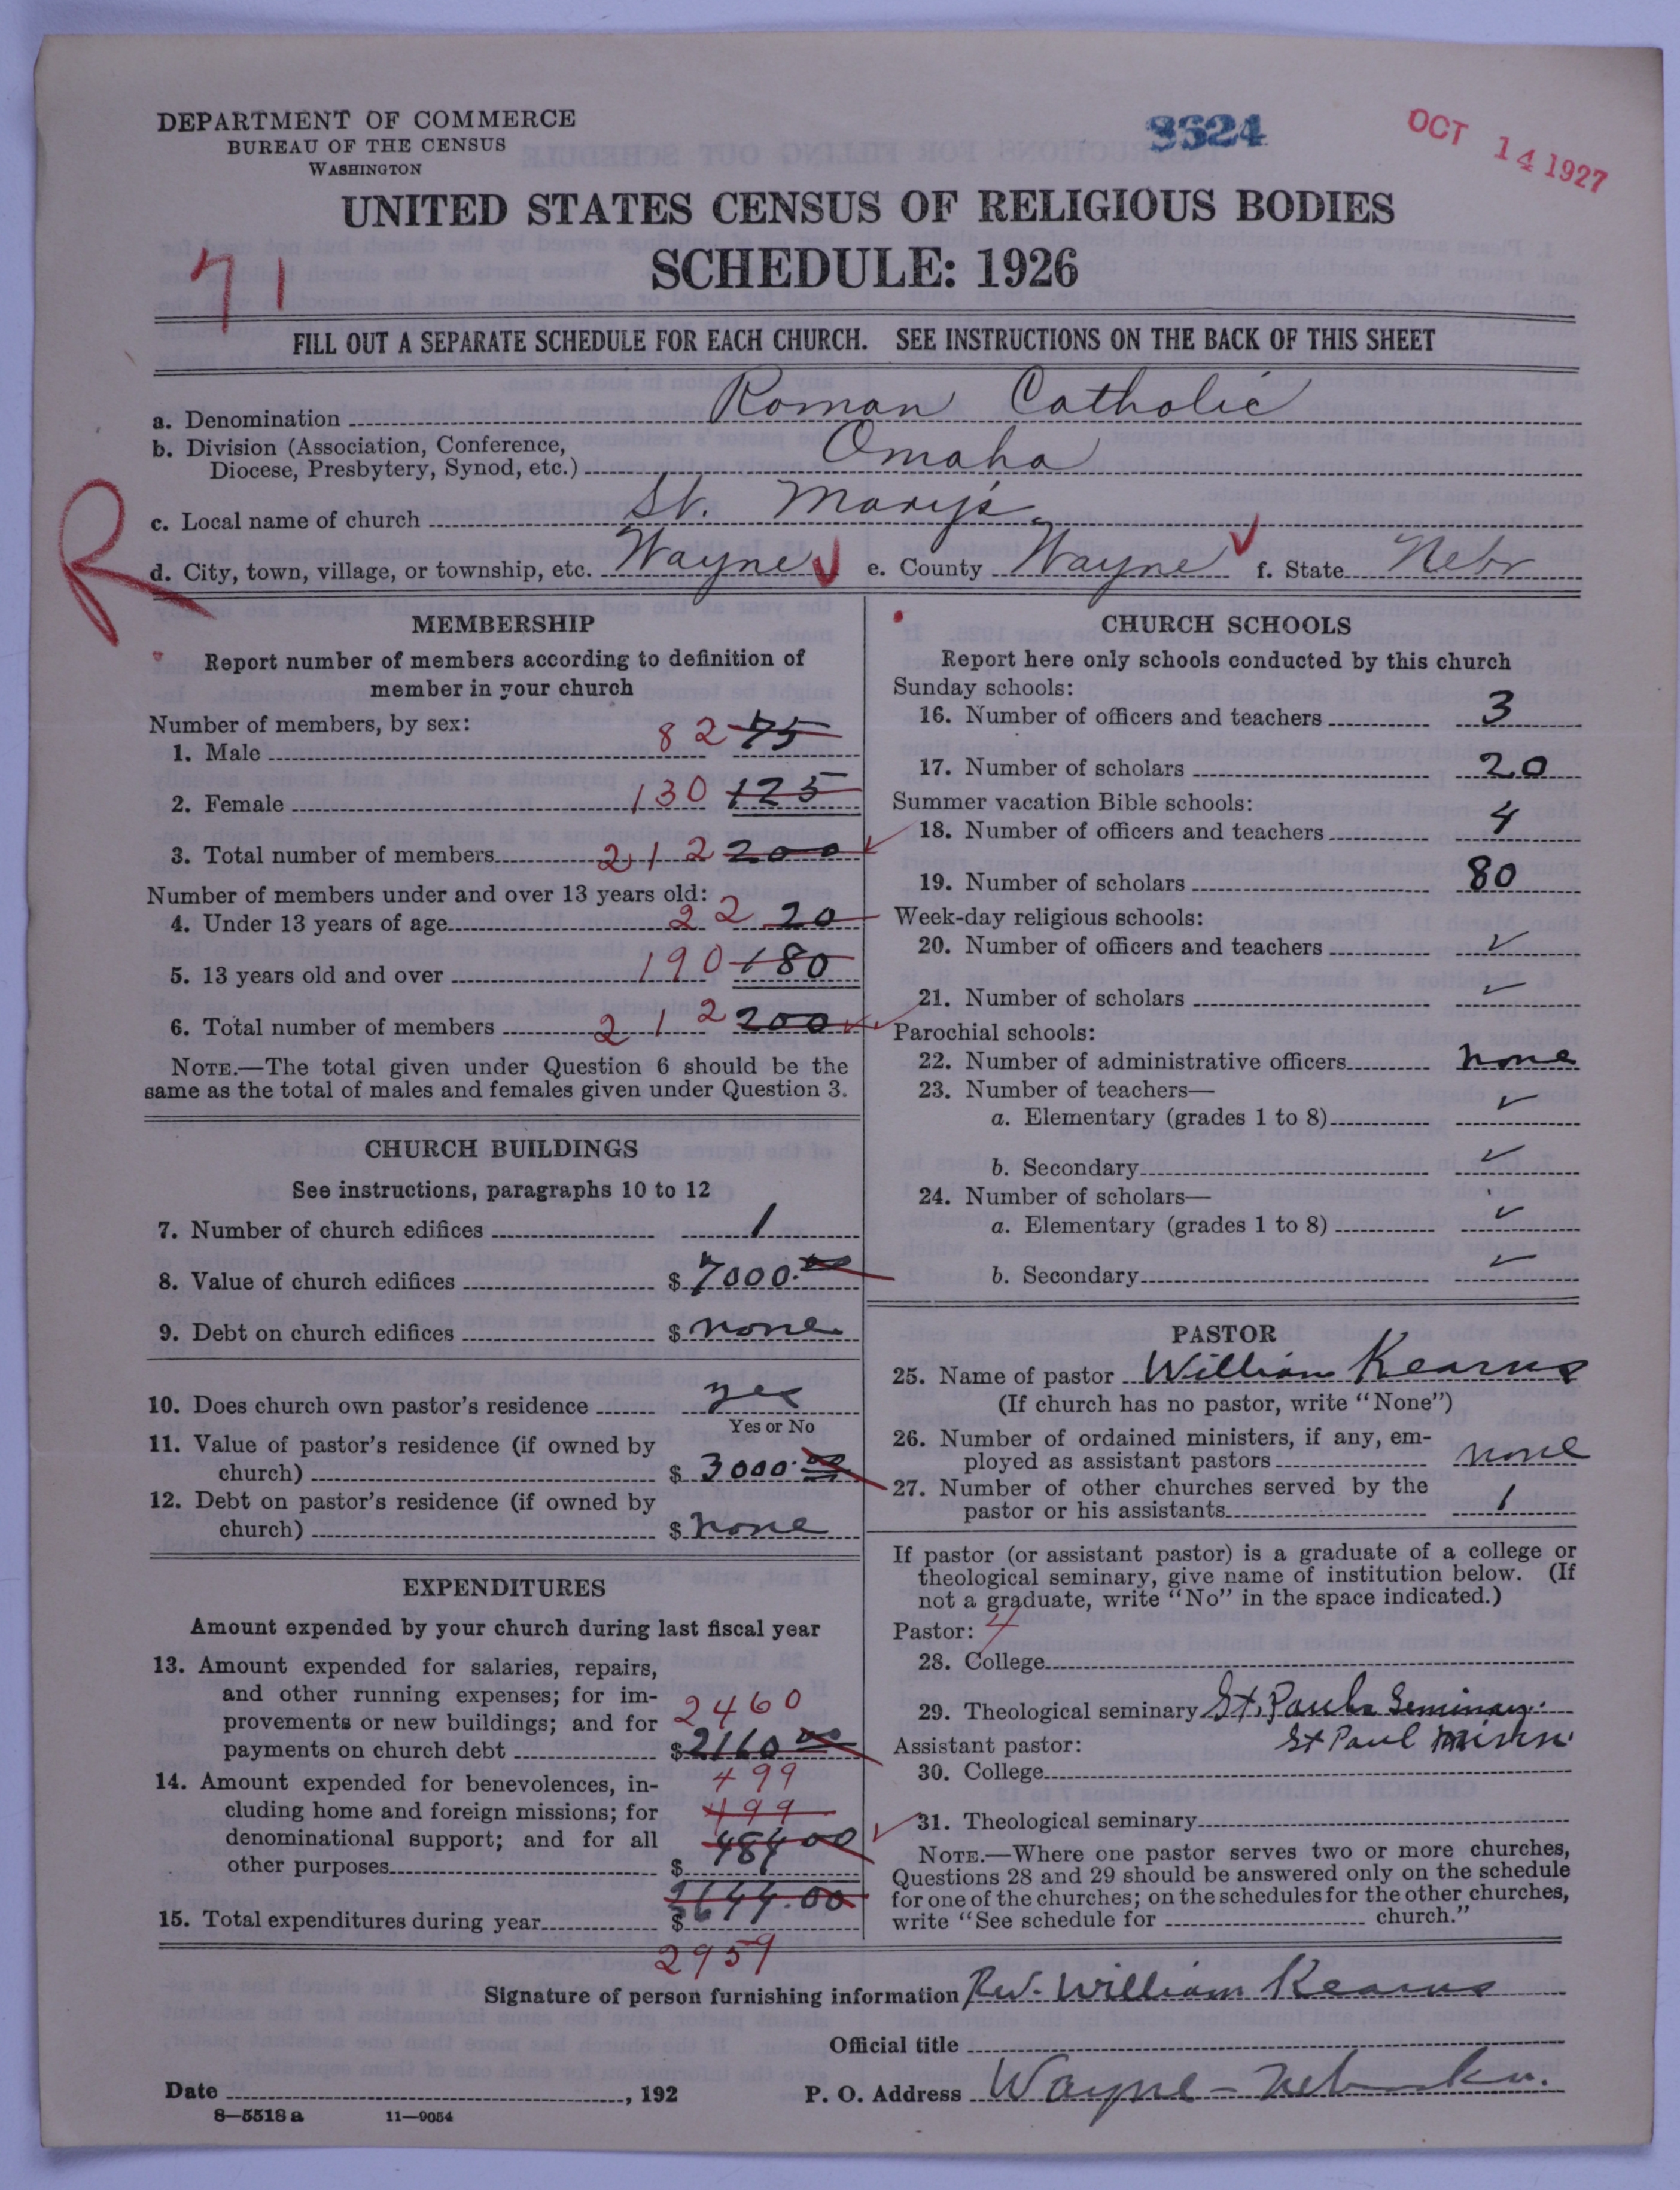 DEPARTMENT OF COMMERCE
BUREAU OF THE CENSUS
WASHINGTON
3624
OCT 14 1927
UNITED STATES CENSUS OF RELIGIOUS BODIES
SCHEDULE: 1926
71
FILL OUT A SEPARATE SCHEDULE FOR EACH CHURCH. SEE INSTRUCTIONS ON THE BACK OF THIS SHEET
a. Denomination Roman Catholic
b. Division (Association, Conference,
Diocese, Presbytery, Synod, etc.) Omaha
c. Local name of church St. Mary's
R
d. City, town, village, or township, etc. Wayne e. County Wayne f. State Nebr
MEMBERSHIP
Report number of members according to definition of
member in your church
Number of members, by sex:
1. Male 82 75
2. Female 130 125
3. Total number of members 212 200
Number of members under and over 13 years old:
4. Under 13 years of age 22 20
5. 13 years old and over 190 180
6. Total number of members 212 200
NOTE.—The total given under Question 6 should be the
same as the total of males and females given under Question 3.
CHURCH BUILDINGS
See instructions, paragraphs 10 to 12
7. Number of church edifices 1
8. Value of church edifices $ 7000.00
9. Debt on church edifices $ none
10. Does church own pastor's residence yes
Yes or No
11. Value of pastor's residence (if owned by
church) $ 3000.00
12. Debt on pastor's residence (if owned by
church) $ none
EXPENDITURES
Amount expended by your church during last fiscal year
13. Amount expended for salaries, repairs,
and other running expenses; for im-
provements or new buildings; and for 2460
payments on church debt $ 2160 00
14. Amount expended for benevolences, in- 499
cluding home and foreign missions; for 499
denominational support; and for all 484 00
other purposes $
2644.00
15. Total expenditures during year $
2959
CHURCH SCHOOLS
Report here only schools conducted by this church
Sunday schools:
16. Number of officers and teachers 3
17. Number of scholars 20
Summer vacation Bible schools:
18. Number of officers and teachers 4
19. Number of scholars 80
Week-day religious schools:
20. Number of officers and teachers ✓
21. Number of scholars ✓
Parochial schools:
22. Number of administrative officers none
23. Number of teachers—
a. Elementary (grades 1 to 8) ✓
b. Secondary ✓
24. Number of scholars—
a. Elementary (grades 1 to 8) ✓
b. Secondary ✓
PASTOR
25. Name of pastor William Kearns
(If church has no pastor, write "None")
26. Number of ordained ministers, if any, em-
ployed as assistant pastors none
27. Number of other churches served by the
pastor or his assistants 1
If pastor (or assistant pastor) is a graduate of a college or
theological seminary, give name of institution below. (If
not a graduate, write "No" in the space indicated.)
Pastor: 4
28. College
29. Theological seminary St. Pauls Seminary.
Assistant pastor: St Paul Minn.
30. College
31. Theological seminary
NOTE.—Where one pastor serves two or more churches,
Questions 28 and 29 should be answered only on the schedule
for one of the churches; on the schedules for the other churches,
write "See schedule for church."
Signature of person furnishing information Rev. William Kearns
Official title
Date , 192 P. O. Address Wayne - Nebraska.
8—5518 a 11—9054